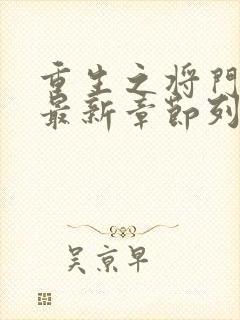 重生之将门
最新章节列
吴京早